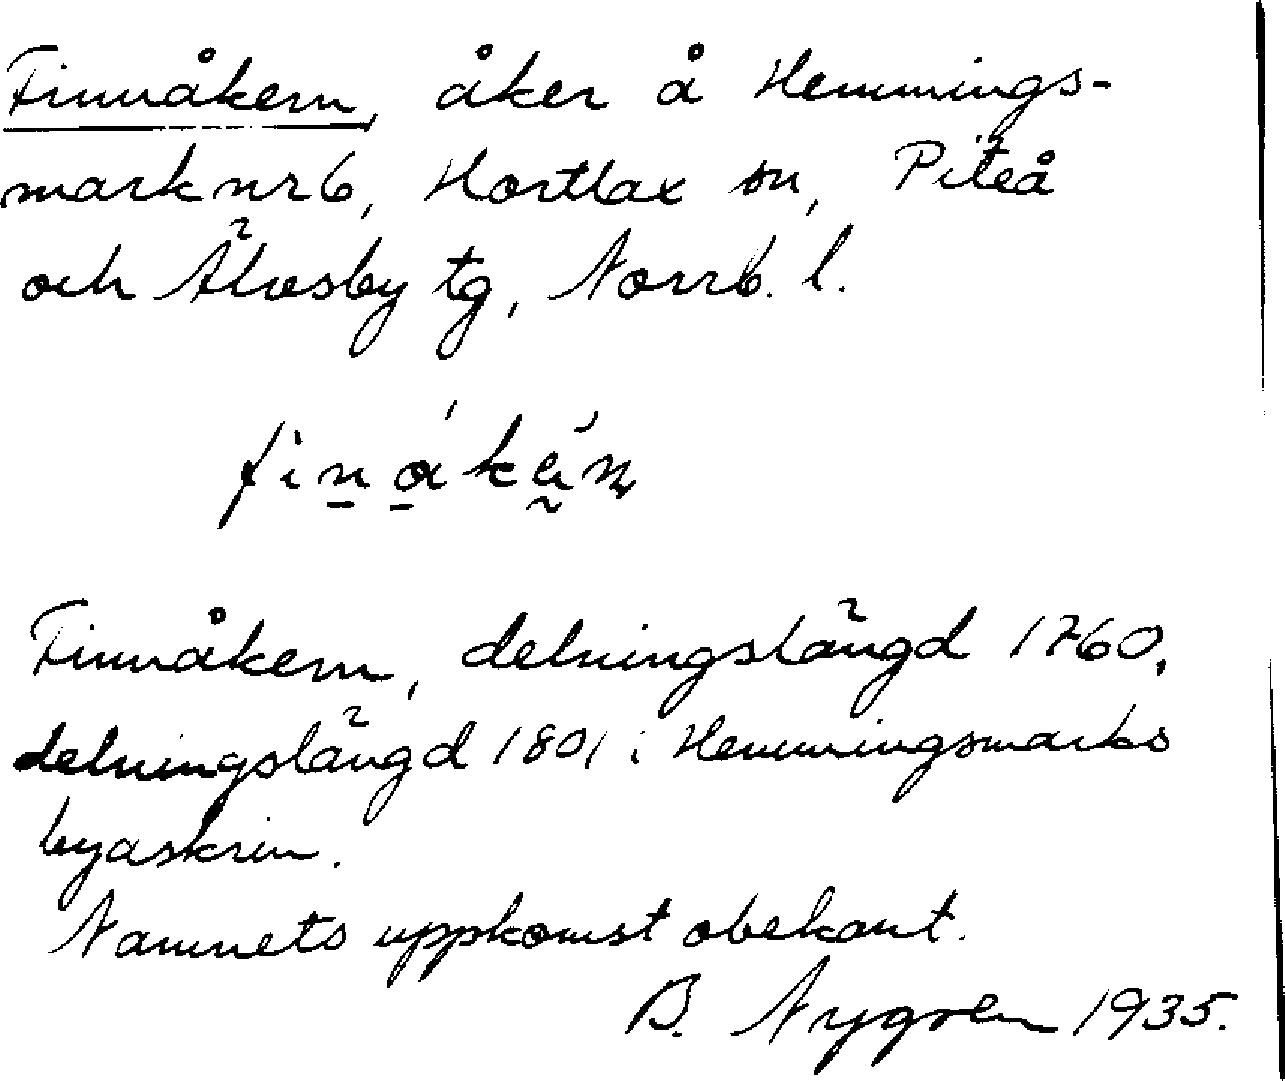 Finnåkern, åker å Hemmings-
mark nr 6, Hortlax sn, Piteå
och Älvsby tg, Norrb. l.
Finnåkern, delningslängd 1760,
delningslängd 1801 i Hemmingsmarks
byaskrin.
Namnets uppkomst obekant.
B. Nygren 1935.